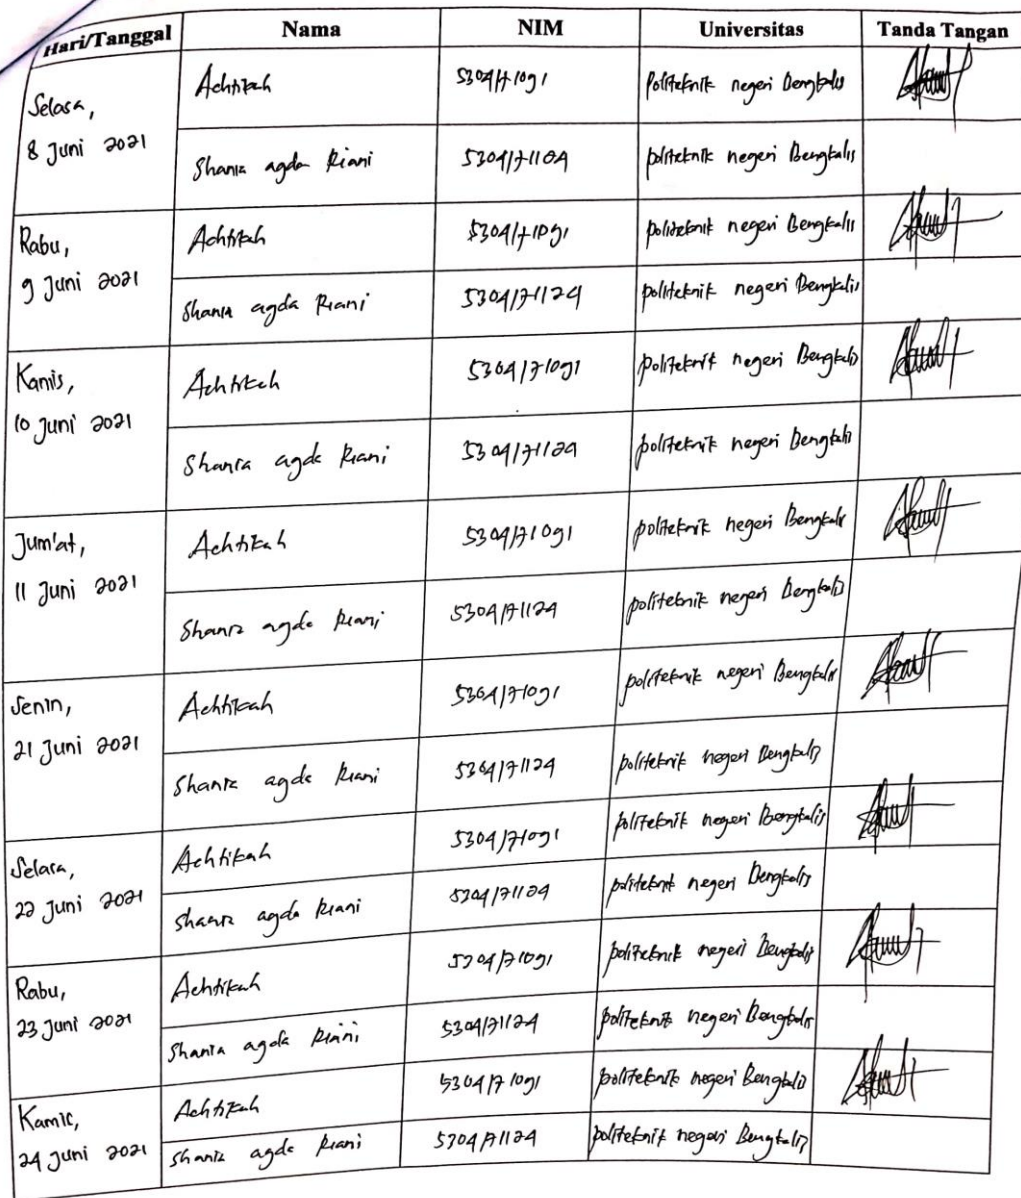 Hari/Tanggal Nama NIM Universitas Tanda Tangan
Selasa, 8 Juni 2021 Achtikah 5304171091 politeknik negeri Bengkalis
Shania agda Riani 5304171124 politeknik negeri Bengkalis
Rabu, 9 Juni 2021 Achtikah 5304171091 politeknik negeri Bengkalis
Shania agda Riani 5304171124 politeknik negeri Bengkalis
Kamis, 10 Juni 2021 Achtikah 5304171091 politeknik negeri Bengkalis
Shania agda Riani 5304171124 politeknik negeri Bengkalis
Jum'at, 11 Juni 2021 Achtikah 5304171091 politeknik negeri Bengkalis
Shania agda Riani 5304171124 politeknik negeri Bengkalis
Senin, 21 Juni 2021 Achtikah 5304171091 politeknik negeri Bengkalis
Shania agda Riani 5304171124 politeknik negeri Bengkalis
Selasa, 22 Juni 2021 Achtikah 5304171091 politeknik negeri Bengkalis
Shania agda Riani 5304171124 politeknik negeri Bengkalis
Rabu, 23 Juni 2021 Achtikah 5304171091 politeknik negeri Bengkalis
Shania agda Riani 5304171124 politeknik negeri Bengkalis
Kamis, 24 Juni 2021 Achtikah 5304171091 politeknik negeri Bengkalis
Shania agda Riani 5304171124 politeknik negeri Bengkalis